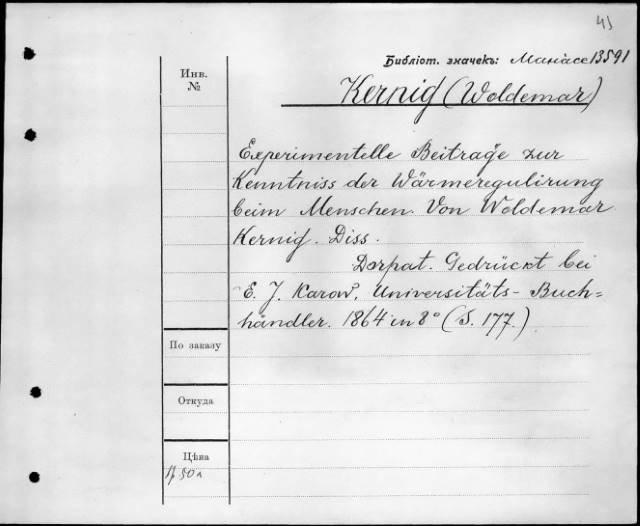 41
Библіот. значекъ: Манассе 13591
Инв.
№
Kernig (Woldemar)
Experimentelle Beiträge zur
Kenntniss der Wärmeregulirung
beim Menschen. Von Woldemar
Kernig. Diss.
Dorpat. Gedrückt bei
E. J. Karow, Universitäts-Buch=
händler. 1864 in 8° (S. 177.)
По заказу
Откуда
Цѣна